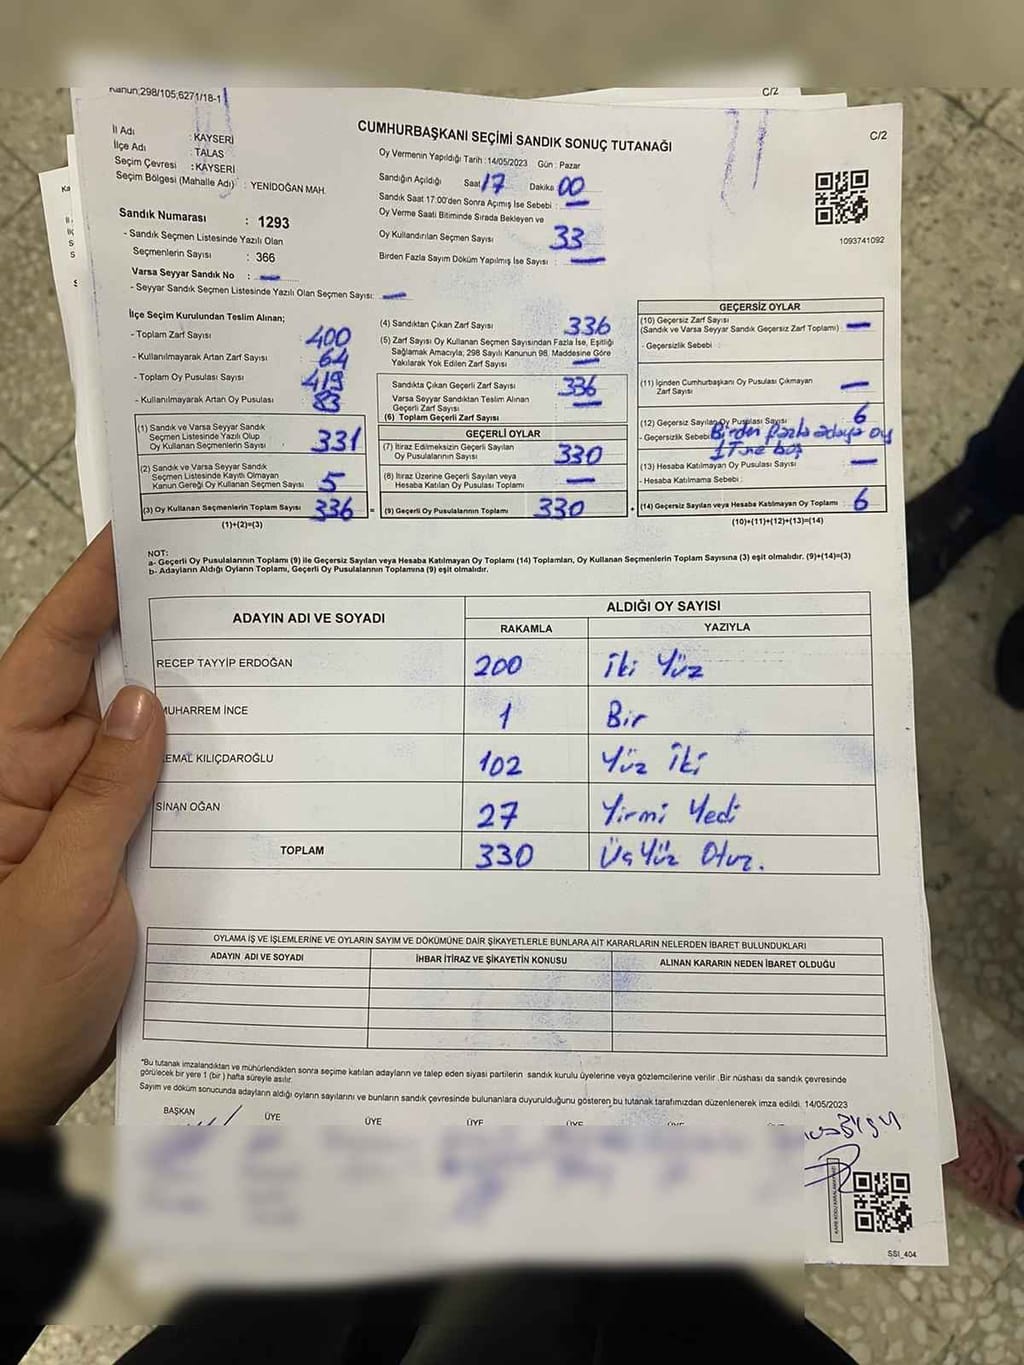 Kanun;298/105,6271/18-1
C/2
C/2
CUMHURBAŞKANI SEÇİMİ SANDIK SONUÇ TUTANAĞI
İl Adı : KAYSERİ
İlçe Adı : TALAS
Seçim Çevresi : KAYSERİ
Seçim Bölgesi (Mahalle Adı) : YENİDOĞAN MAH.
Oy Vermenin Yapıldığı Tarih : 14/05/2023 Gün : Pazar
Sandığın Açıldığı Saat 17 Dakika 00
Sandık Saat 17:00'den Sonra Açımış İse Sebebi : —
Oy Verme Saati Bitiminde Sırada Bekleyen ve
Oy Kullandırılan Seçmen Sayısı 33
Birden Fazla Sayım Döküm Yapılmış İse Sayısı : —
1093741092
Sandık Numarası : 1293
- Sandık Seçmen Listesinde Yazılı Olan
Seçmenlerin Sayısı : 366
Varsa Seyyar Sandık No : —
- Seyyar Sandık Seçmen Listesinde Yazılı Olan Seçmen Sayısı: —
İlçe Seçim Kurulundan Teslim Alınan;
- Toplam Zarf Sayısı 400
- Kullanılmayarak Artan Zarf Sayısı : 64
- Toplam Oy Pusulası Sayısı 419
- Kullanılmayarak Artan Oy Pusulası 83
(1) Sandık ve Varsa Seyyar Sandık
Seçmen Listesinde Yazılı Olup
Oy Kullanan Seçmenlerin Sayısı 331
(2) Sandık ve Varsa Seyyar Sandık
Seçmen Listesinde Kayıtlı Olmayan
Kanun Gereği Oy Kullanan Seçmen Sayısı 5
(3) Oy Kullanan Seçmenlerin Toplam Sayısı 336 =
(1)+(2)=(3)
(4) Sandıktan Çıkan Zarf Sayısı : 336
(5) Zarf Sayısı Oy Kullanan Seçmen Sayısından Fazla İse, Eşitliği
Sağlamak Amacıyla; 298 Sayılı Kanunun 98. Maddesine Göre
Yakılarak Yok Edilen Zarf Sayısı : —
Sandıkta Çıkan Geçerli Zarf Sayısı : 336
Varsa Seyyar Sandıktan Teslim Alınan
Geçerli Zarf Sayısı : —
(6) Toplam Geçerli Zarf Sayısı
GEÇERLİ OYLAR
(7) İtiraz Edilmeksizin Geçerli Sayılan
Oy Pusulasının Sayısı 330
(8) İtiraz Üzerine Geçerli Sayılan veya
Hesaba Katılan Oy Pusulası Toplamı —
(9) Geçerli Oy Pusulalarının Toplamı 330 +
GEÇERSİZ OYLAR
(10) Geçersiz Zarf Sayısı
(Sandık ve Varsa Seyyar Sandık Geçersiz Zarf Toplamı) : —
- Geçersizlik Sebebi :
(11) İçinden Cumhurbaşkanı Oy Pusulası Çıkmayan
Zarf Sayısı —
(12) Geçersiz Sayılan Oy Pusulası Sayısı : 6
- Geçersizlik Sebebi: Birden fazla adaya oy
1 Tane boş
(13) Hesaba Katılmayan Oy Pusulası Sayısı —
- Hesaba Katılmama Sebebi :
(14) Geçersiz Sayılan veya Hesaba Katılmayan Oy Toplamı 6
(10)+(11)+(12)+(13)=(14)
NOT:
a- Geçerli Oy Pusulalarının Toplamı (9) ile Geçersiz Sayılan veya Hesaba Katılmayan Oy Toplamı (14) Toplamları, Oy Kullanan Seçmenlerin Toplam Sayısına (3) eşit olmalıdır. (9)+(14)=(3)
b- Adayların Aldığı Oyların Toplamı, Geçerli Oy Pusulalarının Toplamına (9) eşit olmalıdır.
ADAYIN ADI VE SOYADI ALDIĞI OY SAYISI
RAKAMLA YAZIYLA
RECEP TAYYİP ERDOĞAN 200 İki Yüz
MUHARREM İNCE 1 Bir
EMAL KILIÇDAROĞLU 102 Yüz İki
SİNAN OĞAN 27 Yirmi Yedi
TOPLAM 330 Üç Yüz Otuz.
OYLAMA İŞ VE İŞLEMLERİNE VE OYLARIN SAYIM VE DÖKÜMÜNE DAİR ŞİKAYETLERLE BUNLARA AİT KARARLARIN NELERDEN İBARET BULUNDUKLARI
ADAYIN ADI VE SOYADI İHBAR İTİRAZ VE ŞİKAYETİN KONUSU ALINAN KARARIN NEDEN İBARET OLDUĞU
*Bu tutanak imzalandıktan ve mühürlendikten sonra seçime katılan adayların ve talep eden siyasi partilerin sandık kurulu üyelerine veya gözlemcilerine verilir .Bir nüshası da sandık çevresinde
görülecek bir yere 1 (bir ) hafta süreyle asılır.
Sayım ve döküm sonucunda adayların aldığı oyların sayılarını ve bunların sandık çevresinde bulunanlara duyurulduğunu gösteren bu tutanak tarafımızdan düzenlenerek imza edildi. 14/05/2023
BAŞKAN ÜYE ÜYE ÜYE ÜYE ÜYE
SSI_404